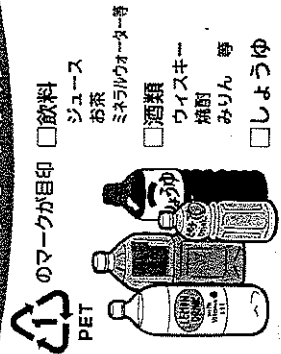 1
PET
のマークが目印
□飲料
ジュース
お茶
ミネラルウォーター等
□酒類
ウィスキー
焼酎
みりん 等
□しょうゆ
しょうゆ
LEMON
DRINK